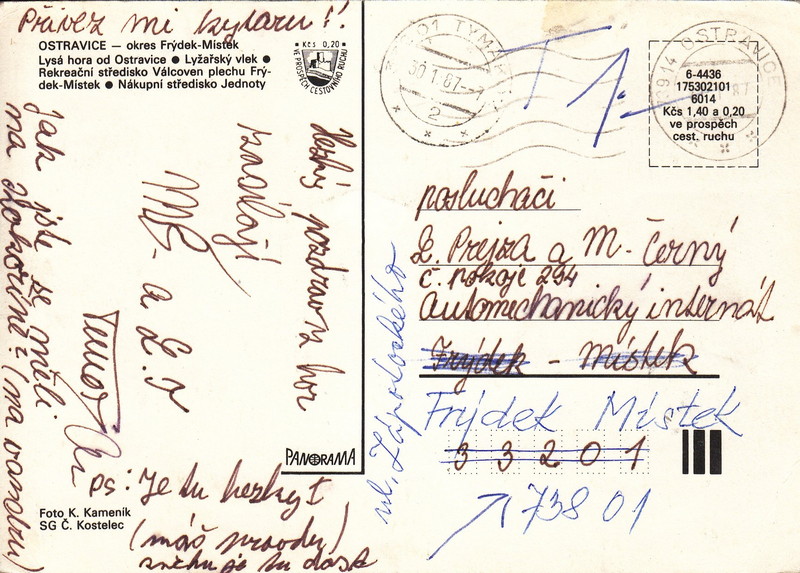 Přivez mi kytaru !!
OSTRAVICE — okres Frýdek-Místek
Lysá hora od Ostravice ● Lyžařský vlek ●
Rekreační středisko Válcoven plechu Frý-
dek-Místek ● Nákupní středisko Jednoty
Kčs 0,20
VE PROSPĚCH CESTOVNÍHO RUCHU
Hezký pozdrav z hor
zasílají
a
Jak jste se měli
na
(na vandru)
PS: Je tu hezky
(máš pravdu)
tu dost
PANORAMA
Foto K. Kameník
SG Č. Kostelec
TÝN
30.1.87
2
T
OSTRAVICE
87
6-4436
175302101
6014
Kčs 1,40 a 0,20
ve prospěch
cest. ruchu
posluchači
Z. Prejza a M. Černý
č. pokoje 294
Automechanický internát
Frýdek - Místek
Frýdek Místek
33201
73801
ul. Zápotockého